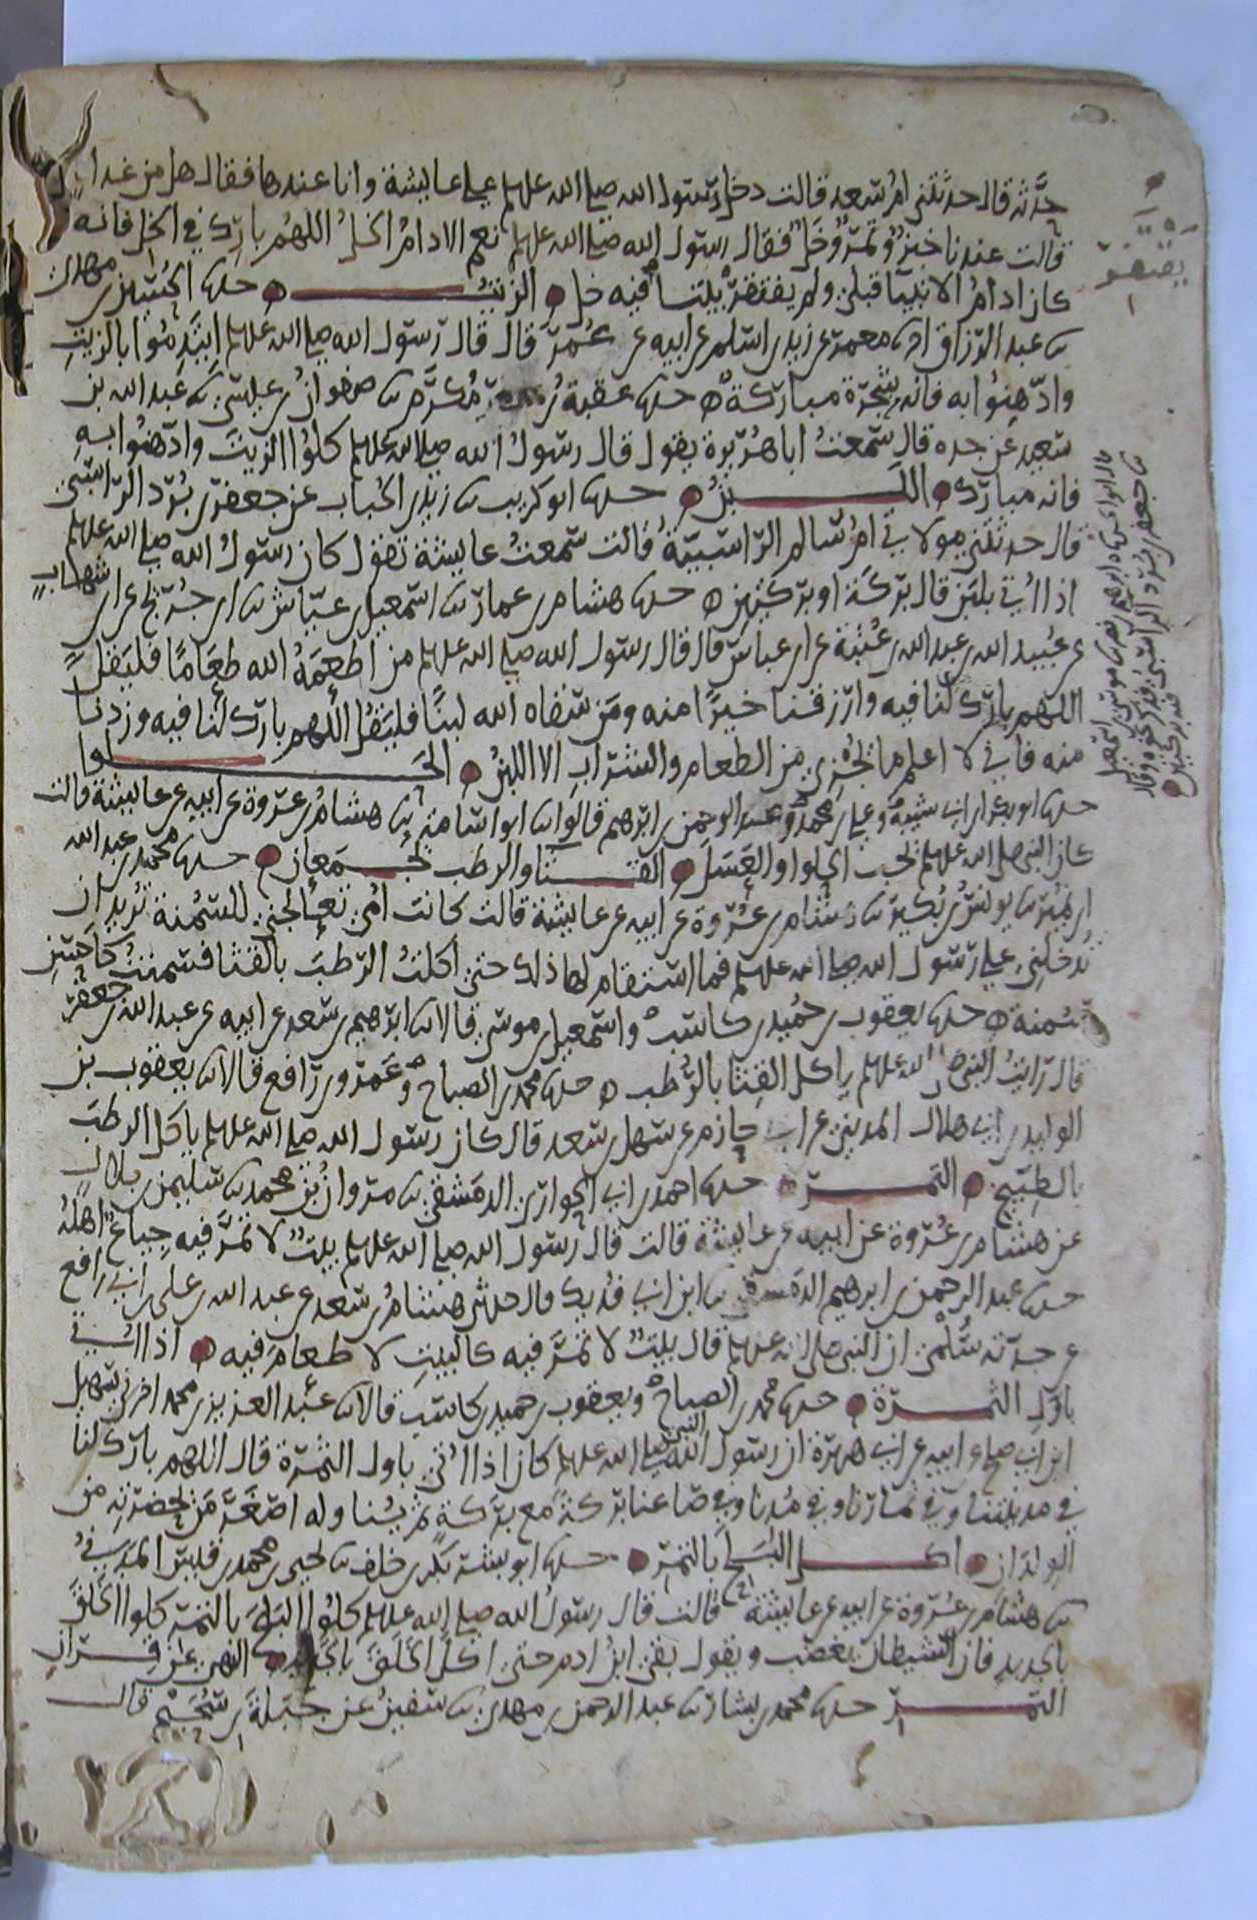 حدثه قال حدثتني ام سعد قالت دخل رسول الله صلى الله علىىهلم على عايشة وانا عندها فقال هل من غداء
قالت عندنا خبز وتمر وخل فقال رسول الله صلى الله علىهلم نعم الادام الخل اللهم بارك في الخل فانه
كان ادام الانبيا قبلي ولم يفتقر بيت فيه خل الزيت حدىا الحسين بن مهدي
ىا عبد الرزاق اىا معمر عن زيد بن اسلم عن ابيه عن عمر قال قال رسول الله صلى الله علىهلم ايتدموا بالزيت
وادهنوا به فانه شجرة مباركة حدىا عقبة بن مكرم ىا صفوان بن عيسى ىا عبد الله بن
سعيد عن جده قال سمعت ابا هريرة يقول قال رسول الله صلى الله علىهلم كلوا الزيت وادهنوا به
فانه مبارك اللبن حدىا ابو كريب ىا زيد بن الحباب عن جعفر بن برد الراسبي
قال حدثتني مولاتي ام سالم الراسبية قالت سمعت عايشة تقول كان رسول الله صلى الله علىهلم
اذا اتي بلبن قال بركة او بركتين حدىا هشام بن عمار ىا اسمعيل بن عياش ىا ابن جريج عن ابن شهاب
عن عبيد الله بن عبد الله بن عتبة عن ابن عباس قال قال رسول الله صلى الله علىهلم من اطعمه الله طعاما فليقل
اللهم بارك لنا فيه وارزقنا خيرا منه ومن سقاه الله لبنا فليقل اللهم بارك لنا فيه وزدنا
منه فاني لا اعلم ما يجزي من الطعام والشراب الا اللبن الحلوا
حدىا ابو بكر بن ابي شيبة وعلي بن محمد وعبد الرحمن بن ابرهيم قالوا ىا ابو اسامة ىا هشام بن عروة عن ابيه عن عايشة قالت
كان النبي صلى الله علىهلم يحب الحلوا والعسل القثا والرطب يجمعان حدىا محمد بن عبد الله
ابن نمير ىا يونس بن بكير ىا هشام بن عروة عن ابيه عن عايشة قالت كانت امي تعالجني للسمنة تريد ان
تدخلني على رسول الله صلى الله علىهلم فما استقام لها ذلك حتى اكلت الرطب بالقثا فسمنت كاحسن
سمنة حدىا يعقوب بن حميد بن كاسب واسمعيل بن موسى قالا ىا ابرهيم بن سعد عن ابيه عن عبد الله بن جعفر
قال رايت النبي صلى الله علىهلم ياكل القثا بالرطب حدىا محمد بن الصباح وعمرو بن رافع قالا ىا يعقوب بن
الوليد بن ابي هلال المديني عن ابي حازم عن سهل بن سعد قال كان رسول الله صلى الله علىهلم ياكل الرطب
بالطبيخ التمر حدىا احمد بن ابي الحواري الدمشقي ىا مروان بن محمد ىا سليمن بن بلال
عن هشام بن عروة عن ابيه عن عايشة قالت قال رسول الله صلى الله علىهلم بيت لا تمر فيه جياع اهله
حدىا عبد الرحمن بن ابرهيم الدمشقي ىا ابن ابي فديك قال حدثني هشام بن سعد عن عبد الله بن علي بن ابي رافع
عن جدته سلمى ان النبي صلى الله علىهلم قال بيت لا تمر فيه كالبيت لا طعام فيه اذا اتي
باول الثمرة حدىا محمد بن الصباح ويعقوب بن حميد بن كاسب قالا ىا عبد العزيز بن محمد اخبرني سهيل
ابن ابي صالح عن ابيه عن ابي هريرة ان رسول الله صلى الله علىهلم كان اذا اتي باول الثمرة قال اللهم بارك لنا
في مدينتنا وفي ثمارنا وفي مدنا وفي صاعنا بركة مع بركة ثم يناوله اصغر من بحضرته من
الولدان اكل البلح بالتمر حدىا ابو بشر بكر بن خلف ىا يحيى بن محمد بن قيس المدني
ىا هشام بن عروة عن ابيه عن عايشة قالت قال رسول الله صلى الله علىهلم كلوا البلح بالتمر كلوا الخلق
بالجديد فان الشيطان يغضب ويقول بقي ابن ادم حتى اكل الخلق بالجديد النهي عن قران
التمر حدىا محمد بن بشار ىا عبد الرحمن بن مهدي ىا سفين عن جبلة بن سحيم قال
يفتقر
ىا جعفر بن برد الراسبي